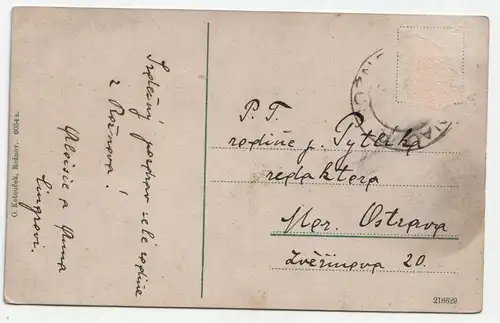 Srdečný pozdrav celé rodině
z Rožnova!
Aloisie a Anna
O. Kotouček, Rožnov. 6054a.
P. T.
rodině p. Pytlíka
redaktora
Mor. Ostrava
Zvěřinova 20.
216629